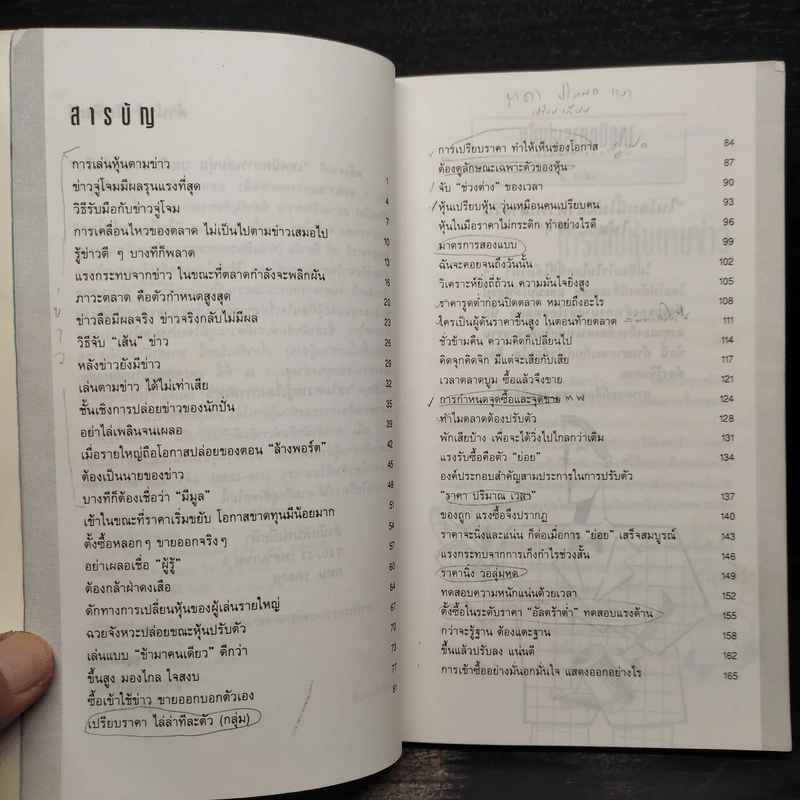 สารบัญ
การเล่นหุ้นตามข่าว 1
ข่าวจู่โจมมีผลรุนแรงที่สุด 4
วิธีรับมือกับข่าวจู่โจม 7
การเคลื่อนไหวของตลาด ไม่เป็นไปตามข่าวเสมอไป 10
รู้ข่าวดี ๆ บางทีก็พลาด 13
แรงกระทบจากข่าว ในขณะที่ตลาดกำลังจะพลิกผัน 16
ภาวะตลาด คือตัวกำหนดสูงสุด 20
ข่าวลือมีผลจริง ข่าวจริงกลับไม่มีผล 23
วิธีจับ "เส้น" ข่าว 26
หลังข่าวยังมีข่าว 29
เล่นตามข่าว ได้ไม่เท่าเสีย 32
ชั้นเชิงการปล่อยข่าวของนักปั่น 35
อย่าไล่เพลินจนเผลอ 39
เมื่อรายใหญ่ถือโอกาสปล่อยของตอน "ล้างพอร์ต" 42
ต้องเป็นนายของข่าว 45
บางทีก็ต้องเชื่อว่า "มีมูล" 48
เข้าในขณะที่ราคาเริ่มขยับ โอกาสขาดทุนมีน้อยมาก 51
ตั้งซื้อหลอกๆ ขายออกจริงๆ 54
อย่าเผลอเชื่อ "ผู้รู้" 57
ต้องกล้าฝ่าดงเสือ 60
ดักทางการเปลี่ยนหุ้นของผู้เล่นรายใหญ่ 64
ฉวยจังหวะปล่อยขณะหุ้นปรับตัว 67
เล่นแบบ "ช้ามาคนเดียว" ดีกว่า 70
ขึ้นสูง มองไกล ใจสงบ 73
ซื้อเข้าใช้ข่าว ขายออกบอกตัวเอง 77
เปรียบราคา ไล่ล่าทีละตัว (กลุ่ม) 81
ราคา ปริมาณ เวลา
การเปรียบราคา ทำให้เห็นช่องโอกาส 84
ต้องดูลักษณะเฉพาะตัวของหุ้น 87
จับ "ช่วงต่าง" ของเวลา 90
หุ้นเปรียบหุ้น วุ่นเหมือนคนเปรียบคน 93
หุ้นในมือราคาไม่กระดิก ทำอย่างไรดี 96
มาตรการสองแบบ 99
ฉันจะคอยจนถึงวันนั้น 102
วิเคราะห์ยิ่งถี่ถ้วน ความมั่นใจยิ่งสูง 105
ราคารูดต่ำก่อนปิดตลาด หมายถึงอะไร 108
ใครเป็นผู้ดันราคาขึ้นสูง ในตอนท้ายตลาด 111
ชั่วข้ามคืน ความคิดก็เปลี่ยนไป 114
คิดจุกคิดจิก มีแต่จะเสียกับเสีย 117
เวลาตลาดบูม ซื้อแล้วจึงขาย 121
การกำหนดจุดซื้อและจุดขาย 124
ทำไมตลาดต้องปรับตัว 128
พักเสียบ้าง เพื่อจะได้วิ่งไปไกลกว่าเดิม 131
แรงรับซื้อคือตัว "ย่อย" 134
องค์ประกอบสำคัญสามประการในการปรับตัว
"ราคา ปริมาณ เวลา" 137
ของถูก แรงซื้อจึงปรากฏ 140
ราคาจะนิ่งและแน่น ก็ต่อเมื่อการ "ย่อย" เสร็จสมบูรณ์ 143
แรงกระทบจากการเก็งกำไรช่วงสั้น 146
ราคานิ่ง วอลุ่มหด 149
ทดสอบความหนักแน่นด้วยเวลา 152
ตั้งซื้อในระดับราคา "อัลตร้าต่ำ" ทดสอบแรงต้าน 155
กว่าจะรู้ฐาน ต้องแตะฐาน 158
ขึ้นแล้วปรับลง แน่นดี 162
การเข้าซื้ออย่างมั่นอกมั่นใจ แสดงออกอย่างไร 165